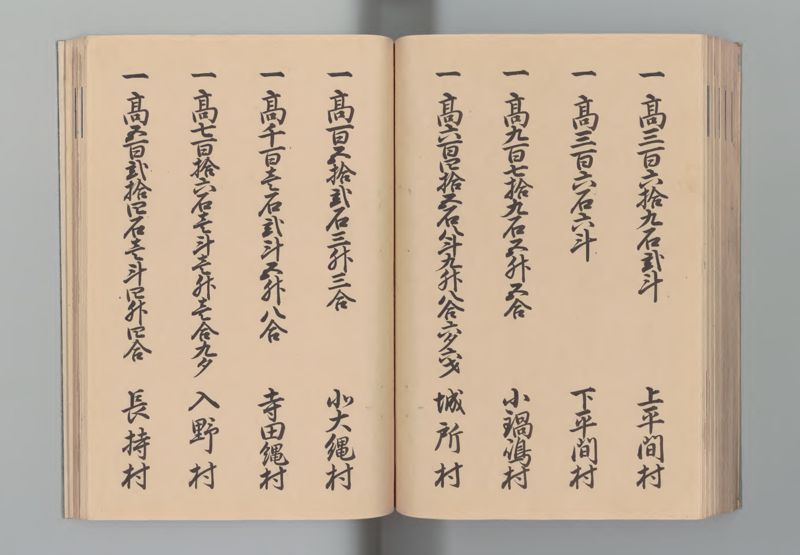 一 高三百六拾九石弐斗 上平間村
一 高三百六石六斗 下平間村
一 高九百七拾九石五升五合 小鍋嶋村
一 高六百四拾五石八斗九升八合六夕六才 城所村
一 高百五拾弐石三升三合 小大縄村
一 高千百壱石弐斗五升八合 寺田縄村
一 高七百拾六石壱斗壱升壱合九夕 入野村
一 高五百弐拾四石壱斗四升四合 長持村